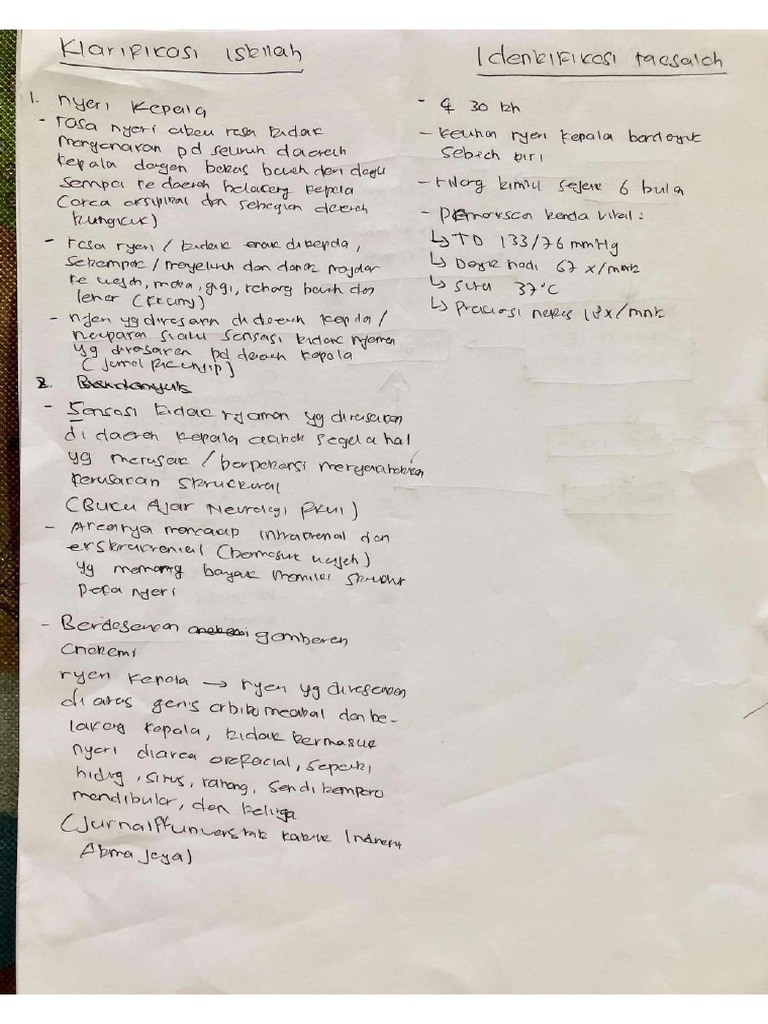 Klarifikasi istilah
1. Nyeri Kepala
- rasa nyeri atau rasa tidak
mengenakan pd seluruh daerah
kepala dengan batas bawah dari dagu
sampai ke daerah belakang kepala
(area oksipital dan sebagian daerah
tengkuk)
- rasa nyeri / tidak enak di kepala,
setempat / menyeluruh dan dapat menjalar
ke wajah, mata, gigi, rahang bawah dan
leher
- nyeri yg dirasakan di daerah kepala /
merupakan suatu sensasi tidak nyaman
yg dirasakan pd daerah kepala
2.
- Sensasi tidak nyaman yg dirasakan
di daerah kepala akibat segala hal
yg merusak / berpotensi menyebabkan
kerusakan struktural
(Buku Ajar Neurologi FKUI)
- Areanya mencakup intrakranial dan
ekstrakranial (termasuk wajah)
yg memang banyak memiliki struktur
peka nyeri
- Berdasarkan gambaran
anatomi
nyeri kepala → nyeri yg dirasakan
di atas garis orbitomeatal dan be-
lakang kepala, tidak termasuk
nyeri diarea orofacial, seperti
hidung, sinus, rahang, sendi temporo
mandibular, dan telinga
(Jurnal universitas katolik Indonesia
Atma Jaya)
Identifikasi masalah
- ♀ 30 th
- keluhan nyeri kepala berdenyut
sebelah kiri
- hilang timbul sejak 6 bulan
- Pemeriksaan tanda vital :
↳ TD 133/76 mmHg
↳ Denyut nadi 67 x/mnt
↳ suhu 37°C
↳ Frekuensi nafas 18x/mnt